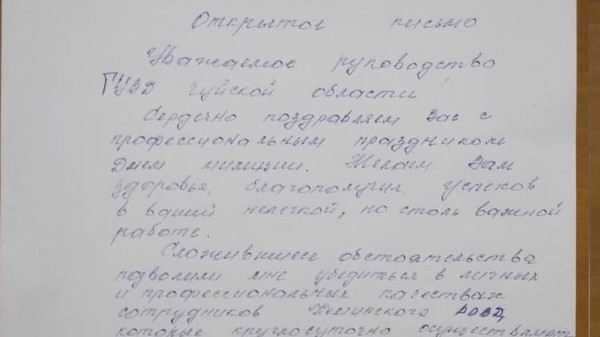 Открытое письмо
Уважаемое руководство
ГУВД Чуйской области!
Сердечно поздравляем Вас с
профессиональным праздником
Днем милиции. Желаем Вам
здоровья, благополучия, успехов
в вашей нелегкой, но столь важной
работе.
Сложившиеся обстоятельства
позволили мне убедиться в личных
и профессиональных качествах
сотрудников Кеминского РОВД,
которые круглосуточно осуществляют